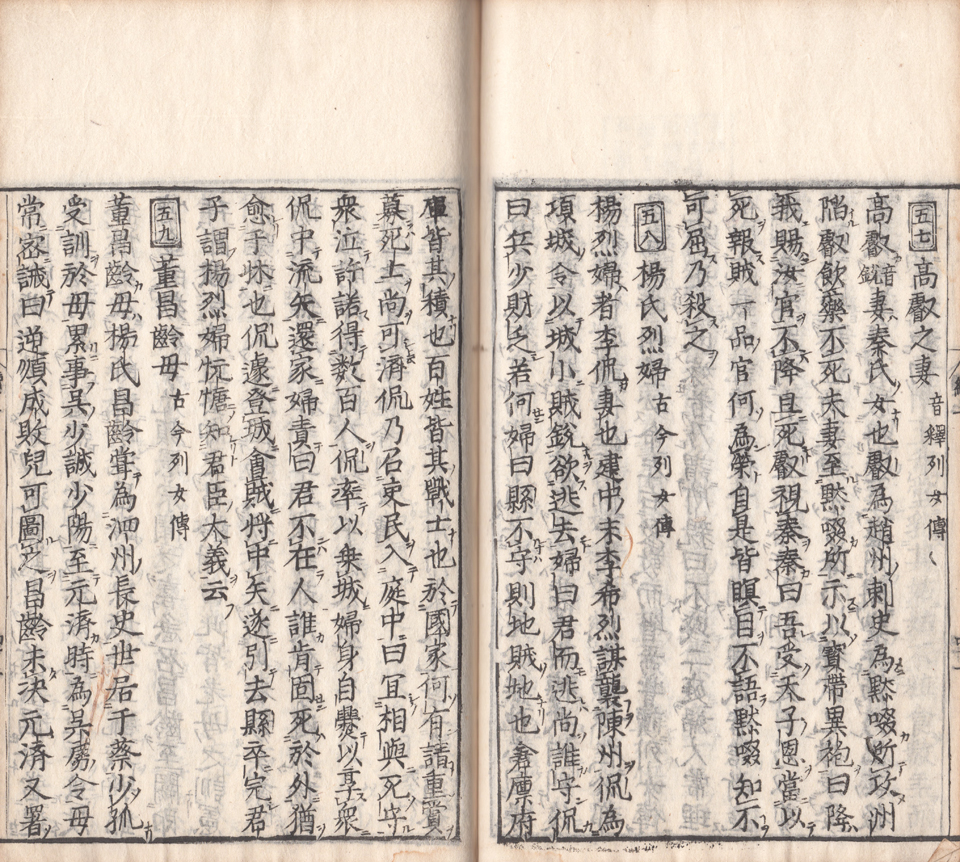 五七 高叡之妻 音釋列女傳
高叡音銳妻秦氏女也叡為趙州刺史為黙啜所攻州
陷叡飲藥不死夫妻至黙啜所示以寶帶異袍曰降
我賜汝官不降且死叡視秦秦曰吾受天子恩當以
死報賊一品官何為榮自是皆瞑目不語黙啜知不
可屈乃殺之
五八 楊氏烈婦 古今列女傳
楊烈婦者李侃妻也建中末李希烈謀襲陳州侃為
項城令以城小賊銳欲逃去婦曰君而逃尚誰守侃
曰兵少財乏若何婦曰縣不守則地賊地也倉廩府
庫皆其積也百姓皆其戰士也於國家何有請重賞
募死士尚可濟侃乃召吏民入庭中曰冝相與死守
衆泣許諾得數百人侃率以乗城婦身自爨以享衆
侃中流矢還家婦責曰君不在人誰肯固死於外猶
愈于牀也侃遽登城會賊將中矢遂引去縣卒完君
子謂楊烈婦忼愾知君臣大義云
五九 董昌齡母 古今列女傳
董昌齡母楊氏昌齡甞為泗州長史世居于蔡少孤
受訓於母累事吳少誠少陽至元濟時為吳房令母
常密誡曰逆順成敗兒可圖之昌齡未決元濟又署